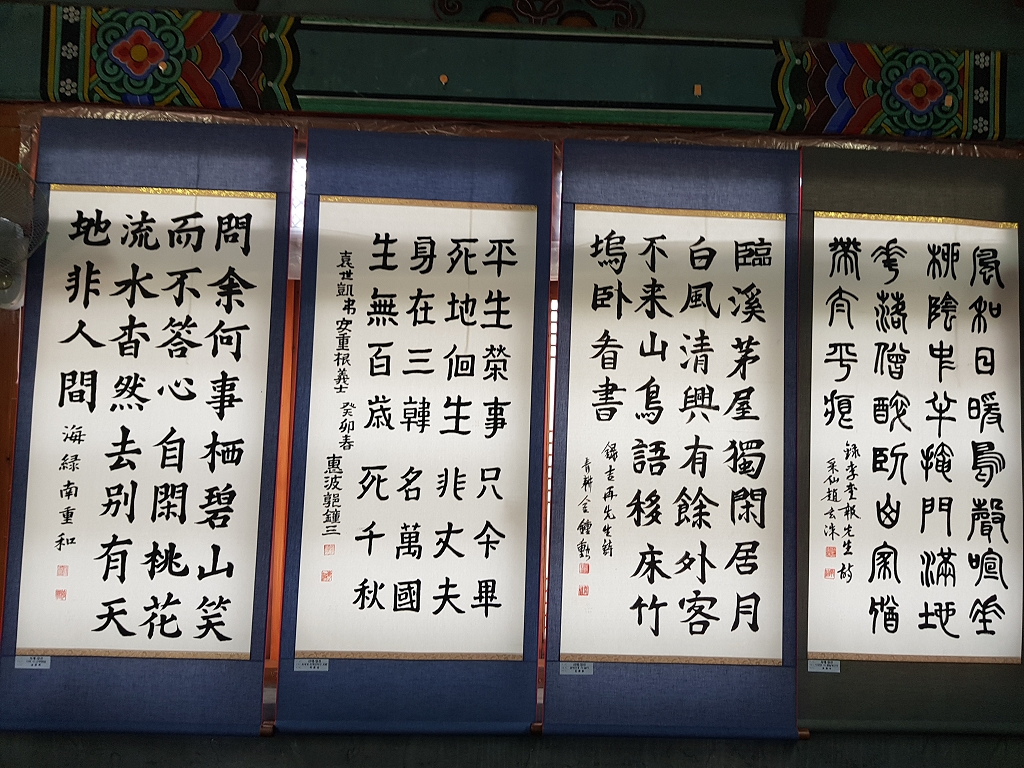 風和日暖鳥聲喧垂
柳陰中半掩門滿地
花落僧醉臥山家猶
帶太平痕
錄李奎報先生詩
采仙趙
臨溪茅屋獨閑居月
白風清興有餘外客
不来山鳥語移床竹
塢卧看書
錄吉再先生詩
金鍾
平生榮事只今畢
死地佪生非丈夫
身在三韓名萬國
生無百歲死千秋
袁世凱弔安重根義士 癸卯春 惠波郭鐘三
問余何事栖碧山笑
而不答心自閑桃花
流水杳然去別有天
地非人間
海緑南重和